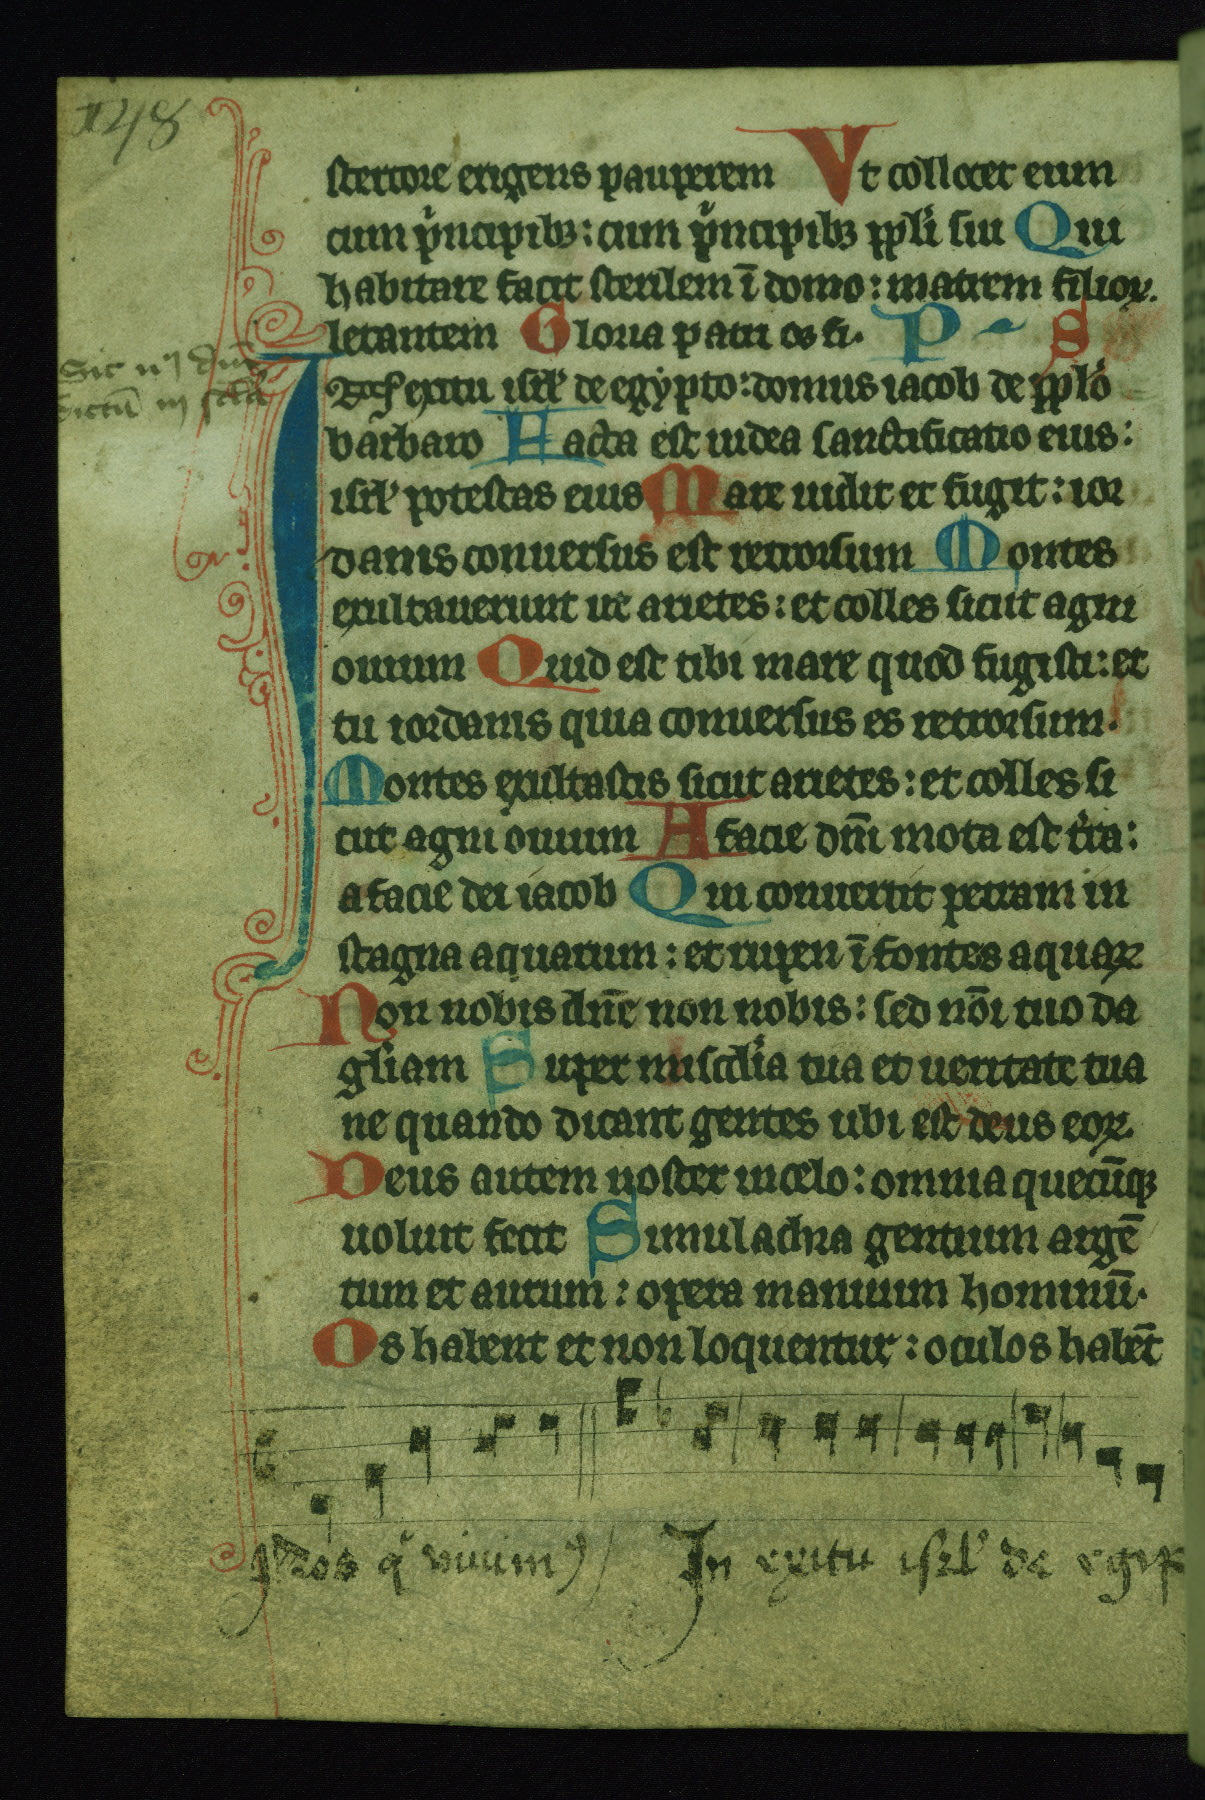 148
stercore erigens pauperem Vt collocet eum
cum p͛ncipibꝫ : cum p͛ncipibꝫ ppl̓i sui Qui
habitare facit sterilem ī domo : matrem filioꝝ.
letantem Gloria patri os fi. P S
In exitu isrl̓ de egypto : domus iacob de ppl̓o
barbaro Facta est iudea sanctificatio eius :
isrl̓ potestas eius Mare uidit et fugit : ior
danis conuersus est retrorsum Montes
exultauerunt ut arietes : et colles sicut agni
ouium Quid est tibi mare quod fugisti : et
tu iordanis quia conuersus es retrorsum.
Montes exultastis sicut arietes : et colles si
cut agni ouium A facie dn̄i mota est t̓ra :
a facie dei iacob Qui conuertit petram in
stagna aquarum : et rupen ī fontes aquaꝝ
Non nobis dn̄e non nobis : sed nōi tuo da
gl̓iam Super miscd̓ia tua et ueritate tua
ne quando dicant gentes ubi est deus eoꝝ.
Deus autem noster in celo : omnia quecūqꝫ
uoluit fecit Simulachra gentium argē
tum et aurum : opera manuum hominū.
Os habent et non loquentur : oculos habēt
Nos q̓ viuimꝰ In exitu isrl̓ de egip